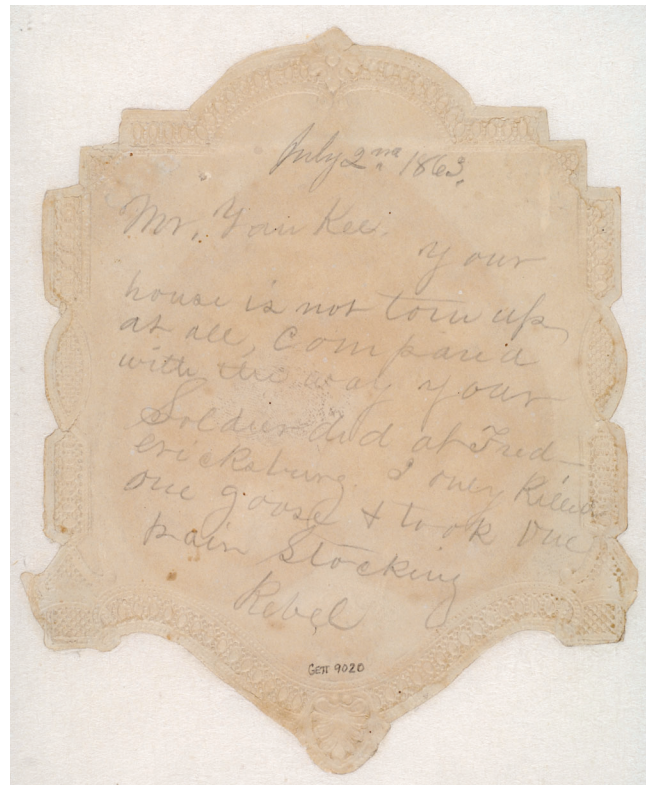 July 2nd 1863.
Mr, Yan Kee.
Your
house is not torn up
at all, Compared
with the way your
Soldier did at Fred-
ericksburg. I only Killed
one goose & took one
pair Stocking
Rebel
GETT 9020